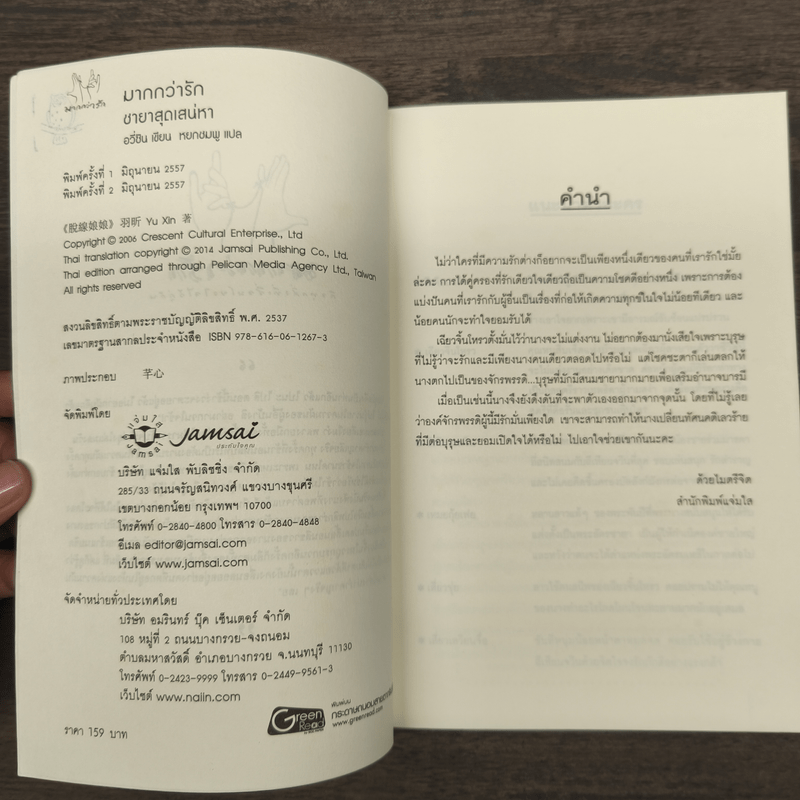 มากกว่ารัก
มากกว่ารัก
ชายาสุดเสน่หา
อวี่ซิน เขียน หยกชมพู แปล
พิมพ์ครั้งที่ 1 มิถุนายน 2557
พิมพ์ครั้งที่ 2 มิถุนายน 2557
《脫線娘娘》羽昕 Yu Xin 著
Copyright © 2006 Crescent Cultural Enterprise., Ltd
Thai translation copyright © 2014 Jamsai Publishing Co., Ltd.
Thai edition arranged through Pelican Media Agency Ltd., Taiwan
All rights reserved
สงวนลิขสิทธิ์ตามพระราชบัญญัติลิขสิทธิ์ พ.ศ. 2537
เลขมาตรฐานสากลประจำหนังสือ ISBN 978-616-06-1267-3
ภาพประกอบ 芊心
จัดพิมพ์โดย
แจ่มใส
Jamsai
Jamsai
ประทับใจคุณ
บริษัท แจ่มใส พับลิชชิ่ง จำกัด
285/33 ถนนจรัญสนิทวงศ์ แขวงบางขุนศรี
เขตบางกอกน้อย กรุงเทพฯ 10700
โทรศัพท์ 0-2840-4800 โทรสาร 0-2840-4848
อีเมล editor@jamsai.com
เว็บไซต์ www.jamsai.com
จัดจำหน่ายทั่วประเทศโดย
บริษัท อมรินทร์ บุ๊ค เซ็นเตอร์ จำกัด
108 หมู่ที่ 2 ถนนบางกรวย-จงถนอม
ตำบลมหาสวัสดิ์ อำเภอบางกรวย จ.นนทบุรี 11130
โทรศัพท์ 0-2423-9999 โทรสาร 0-2449-9561-3
เว็บไซต์ www.naiin.com
Green Read
พิมพ์บน
กระดาษถนอมสายตา
www.greenread.com
ราคา 159 บาท
คำนำ
ไม่ว่าใครที่มีความรักต่างก็อยากจะเป็นเพียงหนึ่งเดียวของคนที่เรารักใช่มั้ย
ล่ะคะ การได้คู่ครองที่รักเดียวใจเดียวถือเป็นความโชคดีอย่างหนึ่ง เพราะการต้อง
แบ่งปันคนที่เรารักกับผู้อื่นเป็นเรื่องที่ก่อให้เกิดความทุกข์ในใจไม่น้อยทีเดียว และ
น้อยคนนักจะทำใจยอมรับได้
เฉียวจิ้นโหรวตั้งมั่นไว้ว่านางจะไม่แต่งงาน ไม่อยากต้องมานั่งเสียใจเพราะบุรุษ
ที่ไม่รู้ว่าจะรักและมีเพียงนางคนเดียวตลอดไปหรือไม่ แต่โชคชะตาก็เล่นตลกให้
นางตกไปเป็นของจักรพรรดิ...บุรุษที่มักมีสนมชายามากมายเพื่อเสริมอำนาจบารมี
เมื่อเป็นเช่นนี้นางจึงยังดึงดันที่จะพาตัวเองออกมาจากจุดนั้น โดยที่ไม่รู้เลย
ว่าองค์จักรพรรดิผู้นี้มีรักมั่นเพียงใด เขาจะสามารถทำให้นางเปลี่ยนทัศนคติเลวร้าย
ที่มีต่อบุรุษและยอมเปิดใจได้หรือไม่ ไปเอาใจช่วยเขากันนะคะ
ด้วยไมตรีจิต
สำนักพิมพ์แจ่มใส